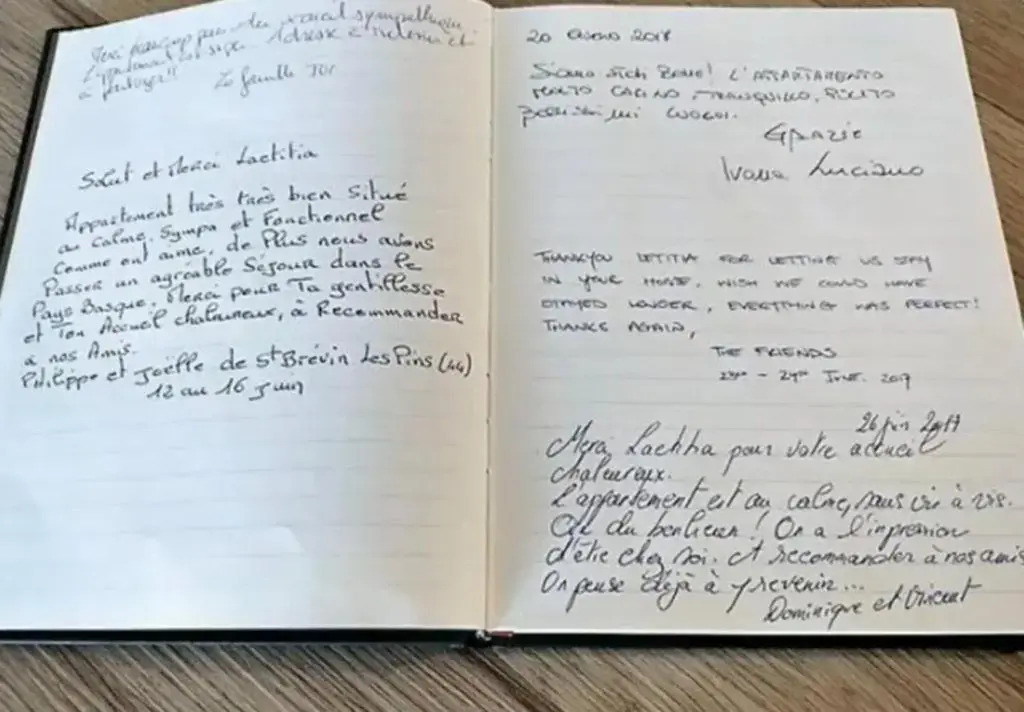 Merci beaucoup pour
Adresse à retenir et
à partager!!
La famille
Salut et Merci Laetitia
Appartement très très bien Situé
au Calme, Sympa et Fonctionnel
Comme ont aime, de Plus nous avons
Passer un agréable Séjour dans le
Pays Basque. Merci pour Ta gentillesse
et Ton Accueil chaleureux, à Recommander
à nos Amis.
Philippe et Joëlle de St Brévin Les Pins (44)
12 au 16 Juin
20
Siamo stati bene! L'APPARTAMENTO
MOLTO CARINO, TRANQUILLO,
Grazie
Ivana Luciano
THANKYOU LETITIA FOR LETTING US STAY
IN YOUR HOME, WISH WE COULD HAVE
STAYED LONGER, EVERYTHING WAS PERFECT!
THANKS AGAIN,
THE FRIENDS
JUNE. 2017
26 juin 2017
Merci, Laetitia pour votre accueil
chaleureux.
L'appartement est au calme, sans vis à vis.
Que du bonheur! On a l'impression
d'être chez soi. A recommander à nos amis
On pense déjà à y revenir...
Dominique et Vincent